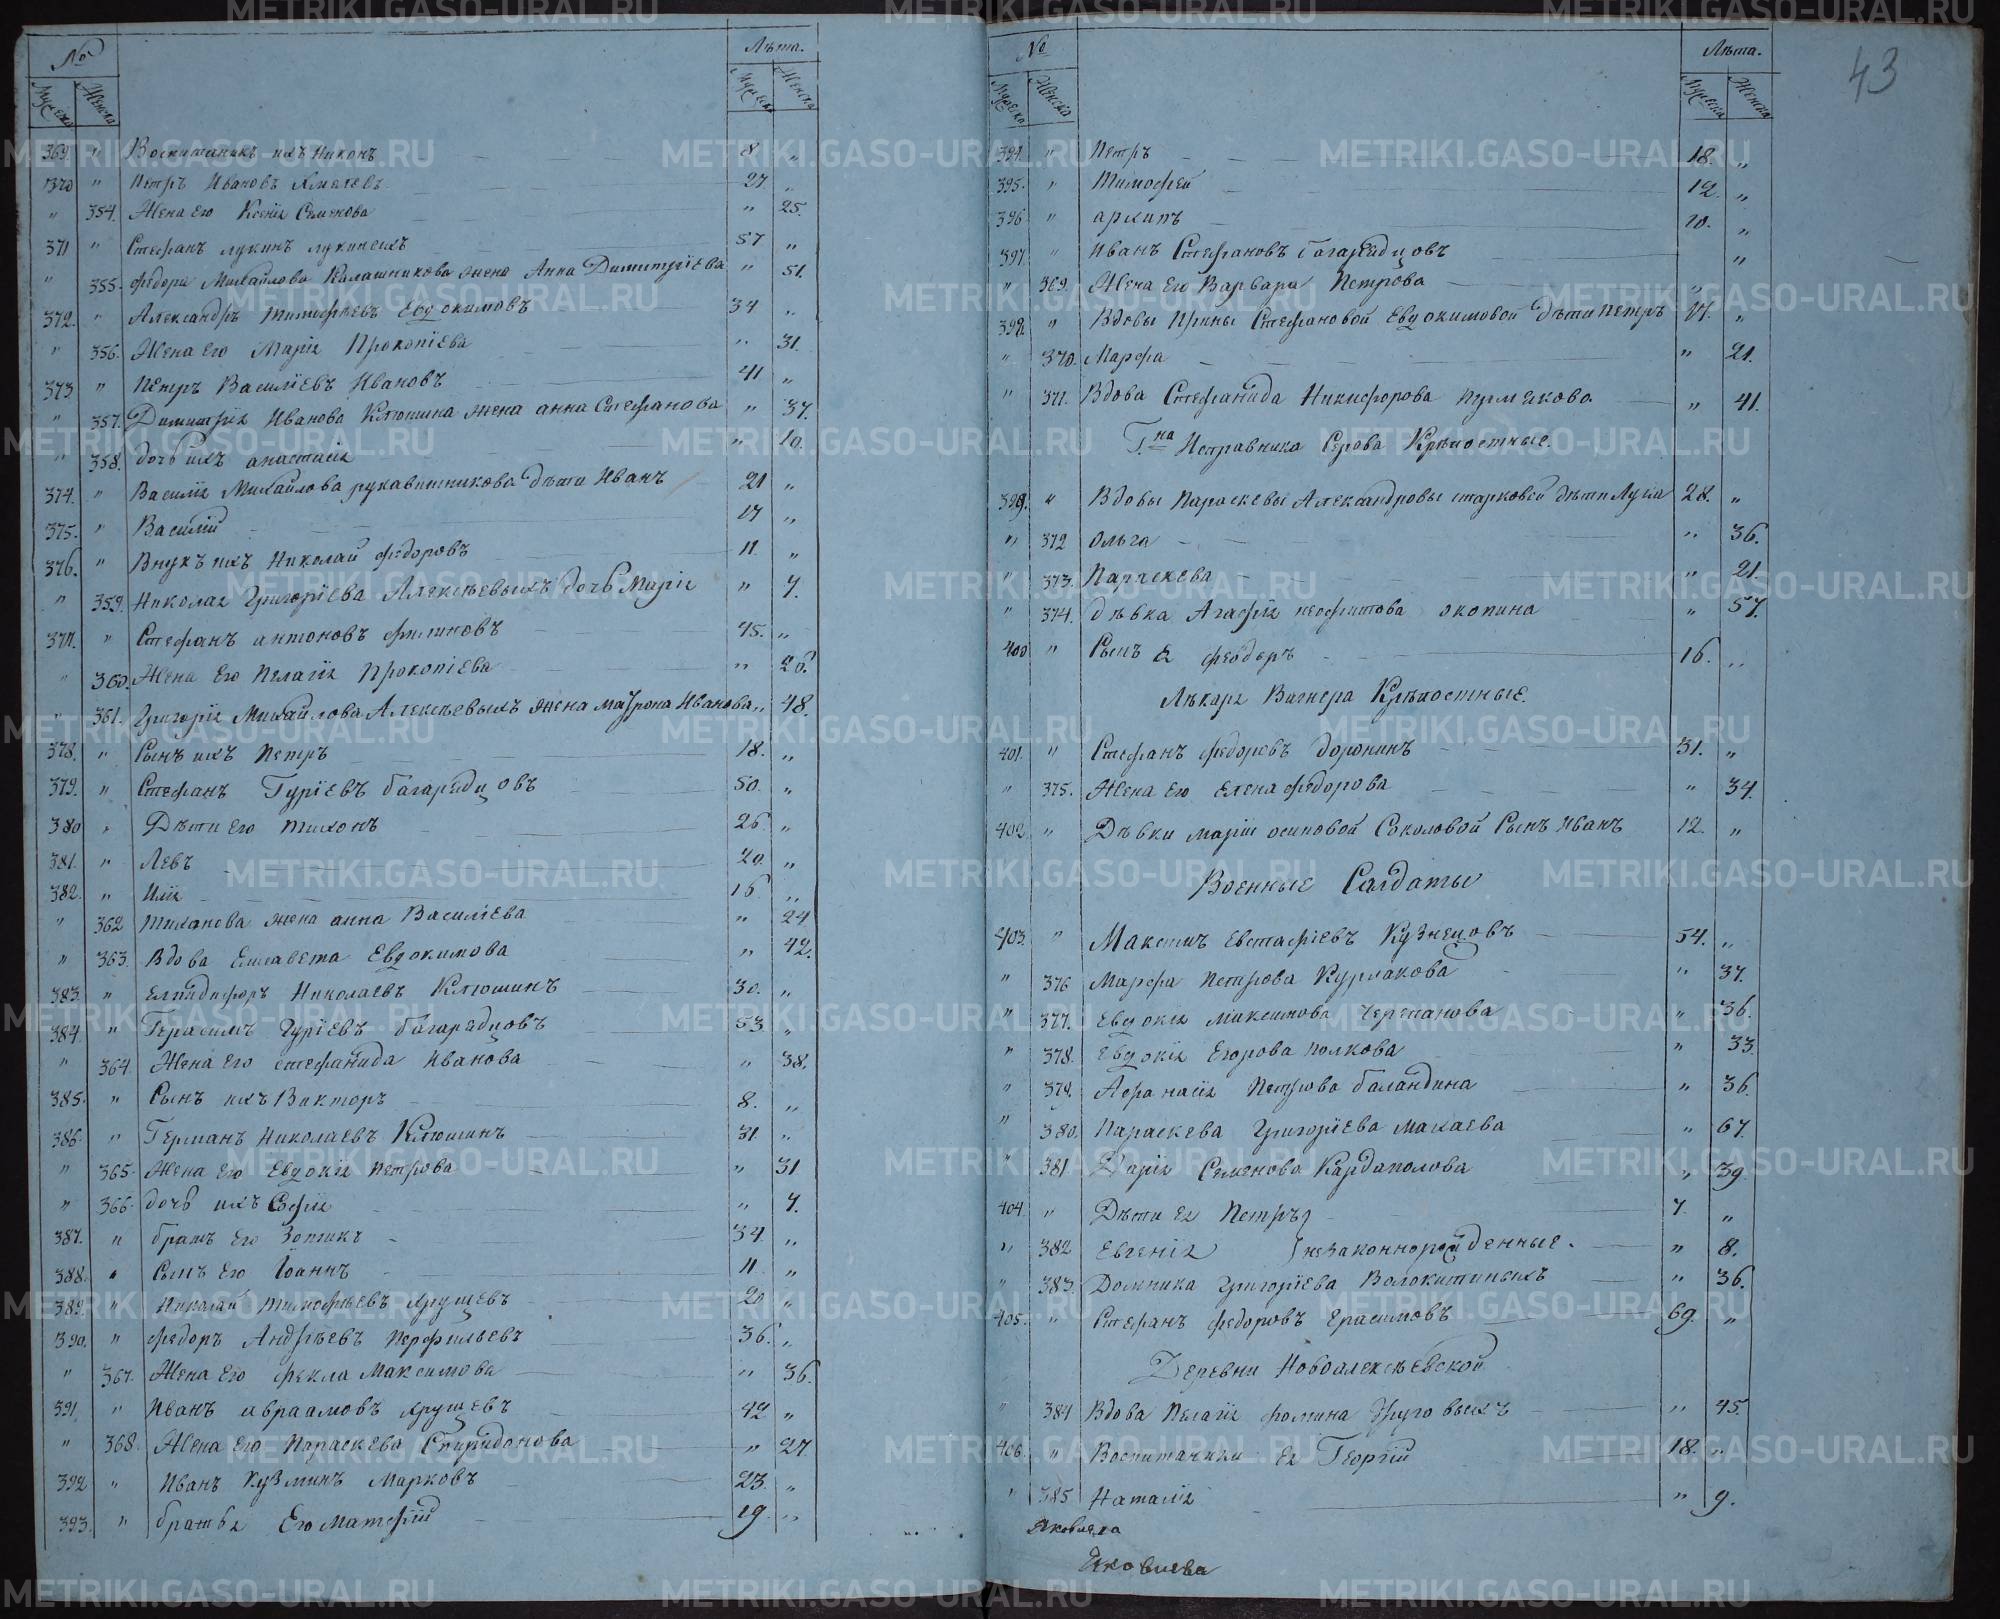 № Лѣта.
Мужеска Женска Мужеска Женска
369. " Воспитаникъ ихъ Никонъ 8 "
370 " Петръ Ивановъ 27 "
" 354. Жена его Ксенія Семенова " 25.
371 " Стефанъ Лукинъ Лукиныхъ 57 "
" 355. Федора Михайлова Калашникова жена Анна Димитріева " 51.
372. " Александръ Тимофѣевъ Евдокимовъ 34 "
" 356. Жена его Марія Прокопіева " 31.
373 " Петръ Василіевъ Ивановъ 41 "
" 357. Димитрія Иванова Клюшина жена анна Стефанова " 37.
" 358. дочь ихъ анастасія " 10.
374. " Василія Михайлова рукавишникова дѣти Иванъ 21 "
375. " Василій 17 "
376. " Внукъ ихъ Николай федоровъ 11. "
" 359. Николая Григоріева Алексѣевыхъ дочь Марія " 7.
377. " Стефанъ антоновъ филиновъ 45. "
" 360. Жена Его Пелагія Прокопіева "
" 361. Григорія Михайлова Алексѣевыхъ жена матрона Иванова " 48.
378. " Сынъ ихъ Петръ 18. "
379. " Стефанъ Гуріевъ багарядцовъ 50. "
380 " Дѣти его тихонъ 26. "
381. " Левъ 20. "
382. " Илія 16 "
" 362 Тиханова жена анна Василіева " 24
" 363. Вдова Елисавета Евдокимова " 42.
383. " Елпидифоръ Николаевъ Клюшинъ 30. "
384. " Герасимъ Гуріевъ багарядцовъ 53. "
" 364. Жена его стефанида Иванова " 38.
385. " Сынъ ихъ Викторъ 8. "
386. " Германъ Николаевъ Клюшинъ 31. "
" 365. Жена Его Евдокія Петрова " 31
" 366. дочь ихъ Софія " 7.
387. " братъ Его Зотикъ 34. "
388. " Сынъ Его Іоаннъ 11. "
389. " Николай Тимофѣевъ Хрущевъ 20 "
390. " Федоръ Андрѣевъ Перфильевъ 36. "
" 367. Жена Его фекла Максимова " 36.
391. " Иванъ авраамовъ Хрущевъ 42 "
" 368. Жена Его Параскева Спиридонова " 27
392 " Иванъ Кузминъ Марковъ 23. "
393. " братья Его Матфій 19. "
43
№ Лѣта.
Мужеска Женска Мужеска Женска
394. " Петръ 18. "
395. " Тимофей 12. "
396 " архипъ 10. "
397. " Иванъ Стефановъ багарядцовъ "
" 369. Жена его Варвара Петрова "
398. " Вдовы Ирины Стефановой Евдокимовой дѣти Петръ 17. "
" 370. Марфа " 21.
" 371. Вдова Стефанида Никифорова " 41.
Г.на Исправника Серова Крѣпостные.
399. " Вдовы Параскевы Александровы старковой дѣти Лука 28. "
" 372 Ольга " 36.
" 373. Параскева " 21.
" 374. дѣвка Агафія неофитова окопина " 57.
400 " Сынъ Ея феодоръ 16. "
Лѣкаря Вагнера Крѣпостные.
401. " Стефанъ федоровъ доронинъ 31. "
" 375. Жена его Елена федорова " 34.
402. " Дѣвки маріи осиповой Соколовой Сынъ Иванъ 12. "
Военные Салдаты
403. " Максимъ Евстафіевъ Кузнецовъ 54. "
" 376 Марфа Петрова Курлакова " 37.
" 377. Евдокія максимова черепанова " 36.
" 378. Евдокія Егорова полкова " 33.
" 379. Афанасія Петрова баландина " 36
" 380. Параскева Григоріева макаева " 67.
" 381 Дарія Семенова Кардаполова " 39
404. " Дѣти ея Петръ 7. "
" 382 Евгенія } незаконнорожденные. " 8.
" 383. Домника Григоріева Волокитиныхъ " 36.
405. " Стефанъ федоровъ Герасимовъ 69. "
Деревни Новоалексѣевской
" 384 Вдова Пелагія фомина " 45.
406. " Воспитаники Ея Георгій 18. "
" 385 Наталія " 9.
Яковлева
Яковлева